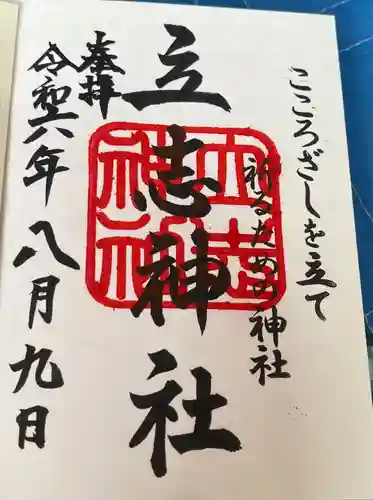 こころざしを立て
祈るための神社
立志神社
奉拝
令和六年八月九日
立志
神社